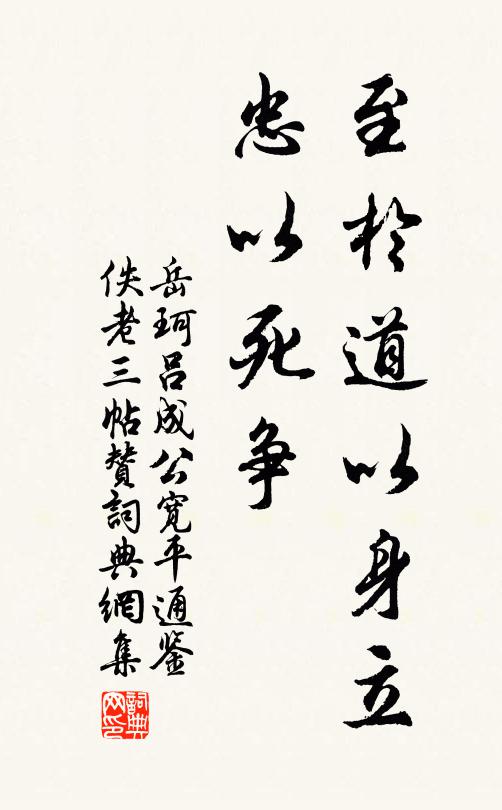 至於道以身立
忠以死争
岳珂吕成公寬平通鉴
佚老三帖赞詞典網集
詞典网印